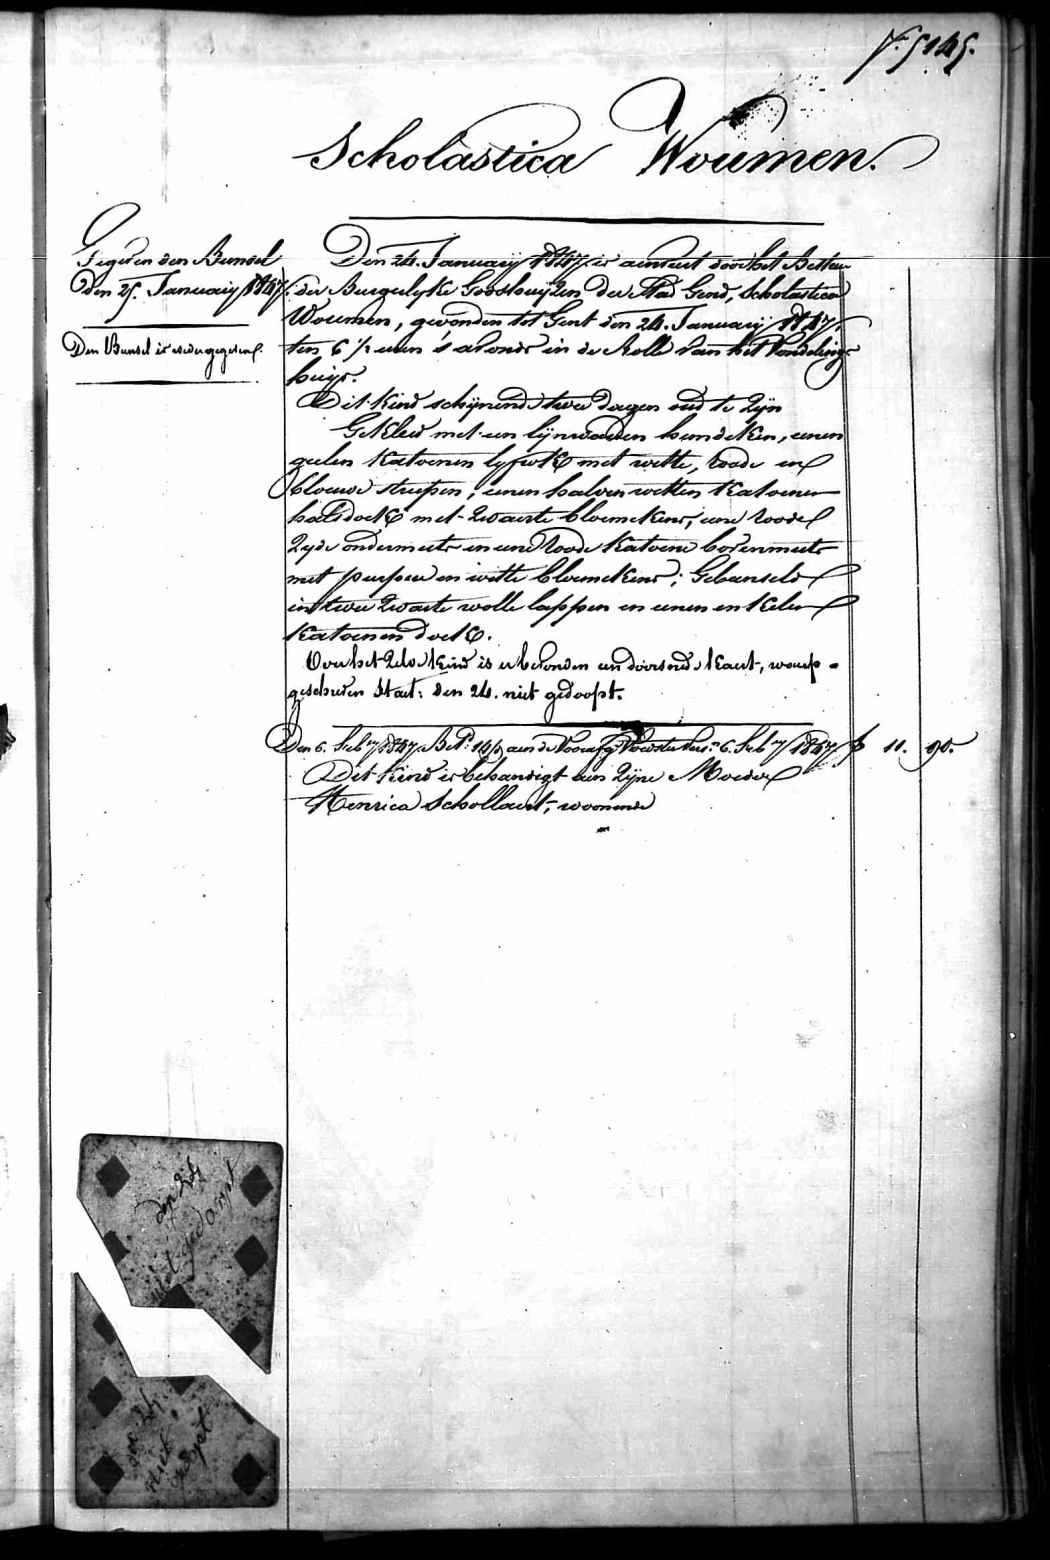 N.° 5145.
Scholastica Woumen.
Gegeven den Bunsel
den 25. January 1847.
Den Bunsel is wedergegeven.
Den 24. January 1847. is aenveert door het Bestuer
der Burgerlyke Godshuyzen der Stad Gend, Scholastica
Woumen, gevonden tot Gent den 24. January 1847,
ten 6 1/2 uren 's avonds in de Rolle van het Vondelings
huys.
Dit kind schynende twee dagen oud te zyn
Gekleed met een lynwaeden hemdeken, eenen
geelen katoenen lyfrok met witte, roode en
blouwe streepen, eenen halven witten katoenen
halsdoek met zwarte bloemekens, eene roode
zyde ondermuts en eene roode katoene bovenmuts
met purper en witte bloemekens; Gebunseld
in twee zwarte wolle lappen en eenen enkelen
katoenen doek.
Over het zelve kind is er bevonden een doorsnede kaart, waerop
geschreven staet: den 24. niet gedoopt.
Den 6. Feb.ry 1847 Bet. 14 aen de 6. Feb.ry 1847 11. 90.
Dit kind is behandigt aen zyne Moeder
Henrica Schollaert, woonende
den 24
niet gedoopt
den 24
niet
gedopt